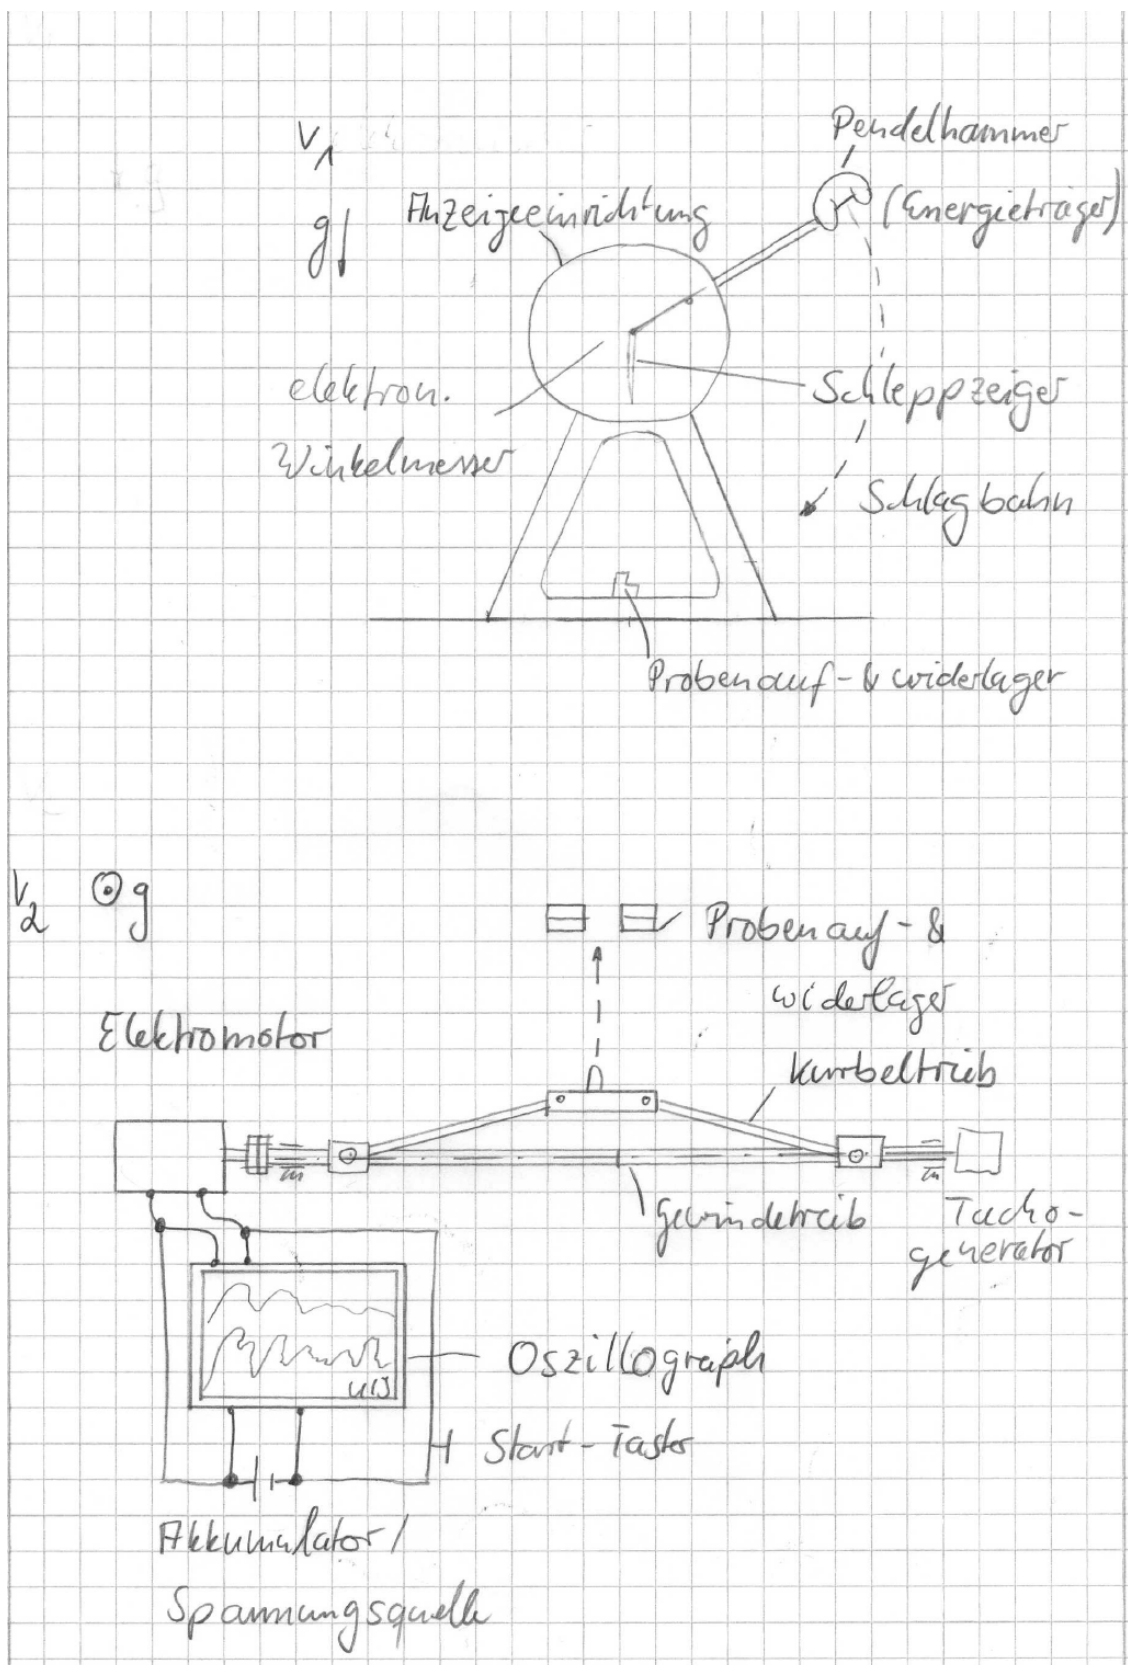 V1
Pendelhammer
g
Anzeigeeinrichtung
(Energieträger)
elektron.
Schleppzeiger
Winkelmesser
Schlagbahn
Probenauf- & widerlager
V2
g
Probenauf- &
widerlager
Elektromotor
Kurbeltrieb
Gewindetrieb
Tacho-
generator
Oszillograph
Start-Taster
Akkumulator/
Spannungsquelle